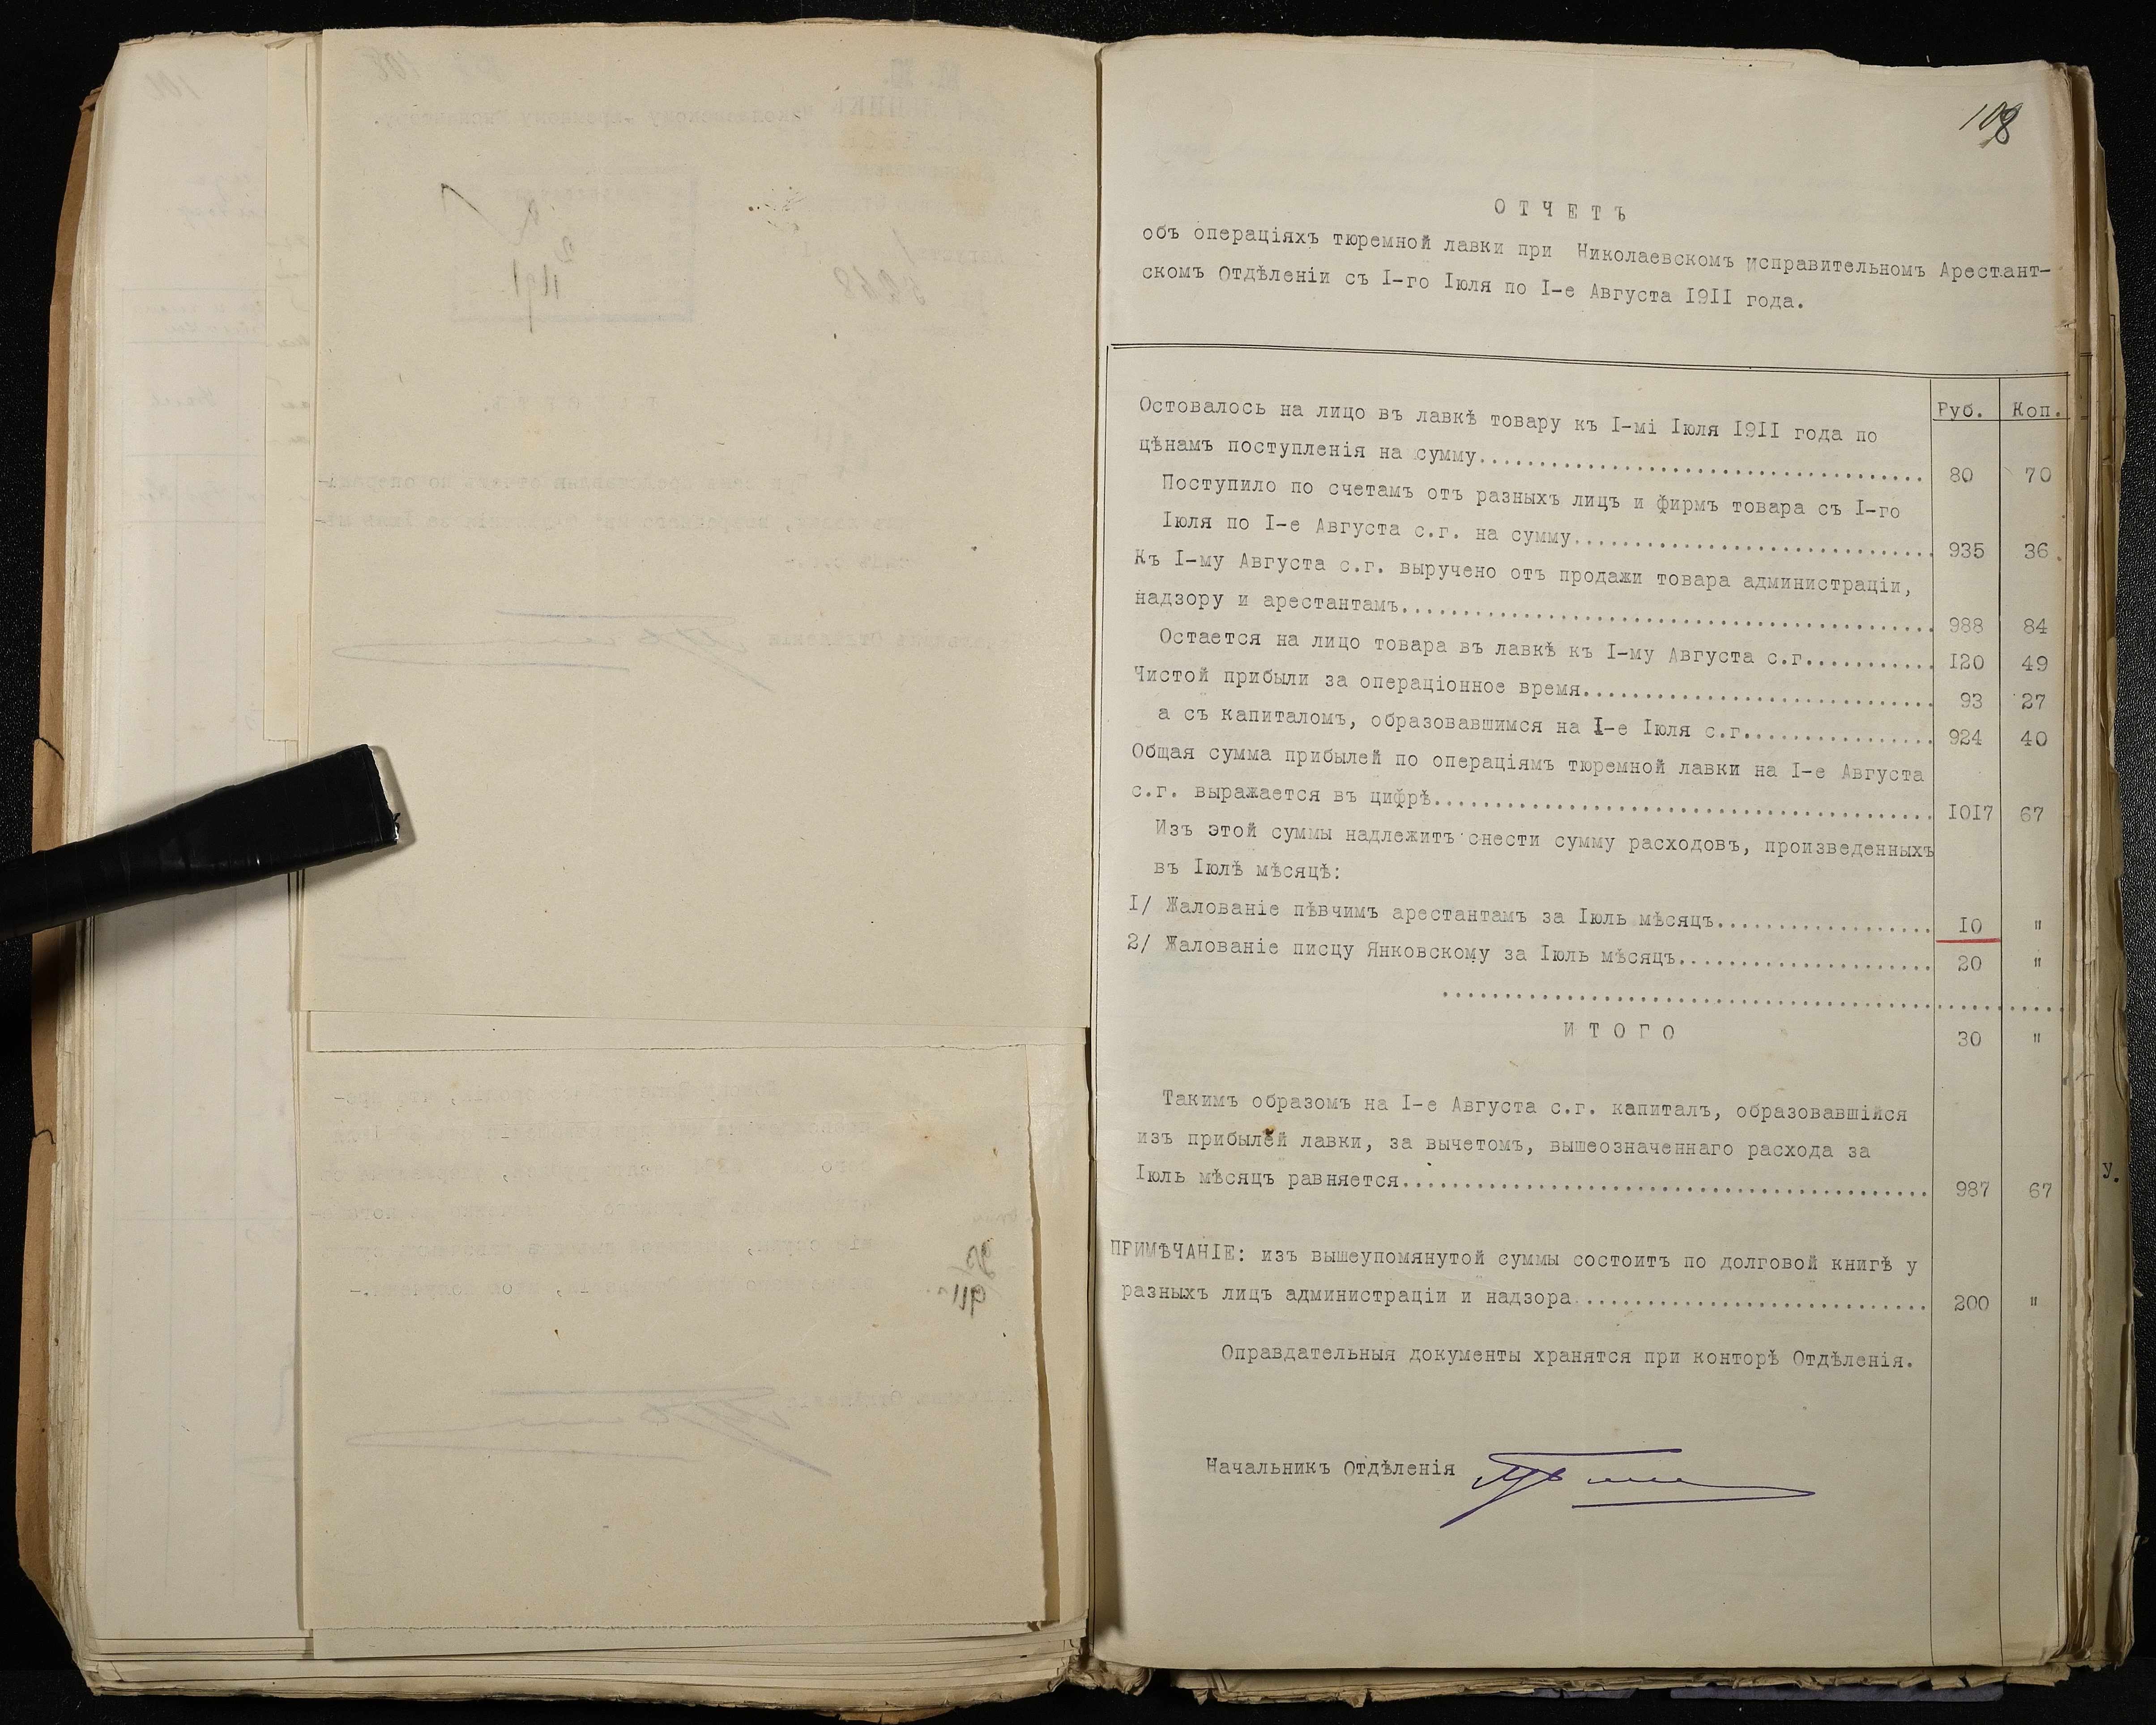 108
ОТЧЕТЪ
объ операціяхъ тюремной лавки при Николаевскомъ исправительномъ Арестант-
скомъ Отдѣленіи съ I-го Іюля по I-е Августа I9II года.
Руб. Коп.
Остовалось на лицо въ лавкѣ товару къ I-мі Іюля I9II года по
цѣнамъ поступленія на сумму.................................... 80 70
Поступило по счетамъ отъ разныхъ лицъ и фирмъ товара съ I-го
Іюля по I-е Августа с.г. на сумму............................. 935 36.
Къ I-му Августа с.г. выручено отъ продажи товара администраціи,
надзору и арестантамъ........................................... 988 84
Остается на лицо товара въ лавкѣ къ I-му Августа с.г........... I20 49
Чистой прибыли за операціонное время............................ 93 27
а съ капиталомъ, образовавшимся на I-е Іюля с.г................ 924 40
Общая сумма прибылей по операціямъ тюремной лавки на I-е Августа
с.г. выражается въ цифрѣ........................................ I0I7 67
Изъ этой суммы надлежитъ снести сумму расходовъ, произведенныхъ
въ Іюлѣ мѣсяцѣ:
I/ Жалованіе пѣвчимъ арестантамъ за Іюль мѣсяцъ.................. I0 "
2/ Жалованіе писцу Янковскому за Іюль мѣсяцъ..................... 20 "
ИТОГО 30 "
Такимъ образомъ на I-е Августа с.г. капиталъ, образовавшійся
изъ прибылей лавки, за вычетомъ, вышеозначеннаго расхода за
Іюль мѣсяцъ равняется........................................... 987 67
ПРИМѢЧАНІЕ: изъ вышеупомянутой суммы состоитъ по долговой книгѣ у
разныхъ лицъ администраціи и надзора............................ 200 "
Оправдательныя документы хранятся при конторѣ Отдѣленія.
Начальникъ Отдѣленія